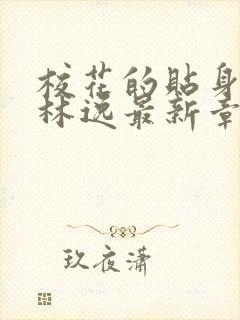 校花的贴身
林逸最新章
玖夜潇